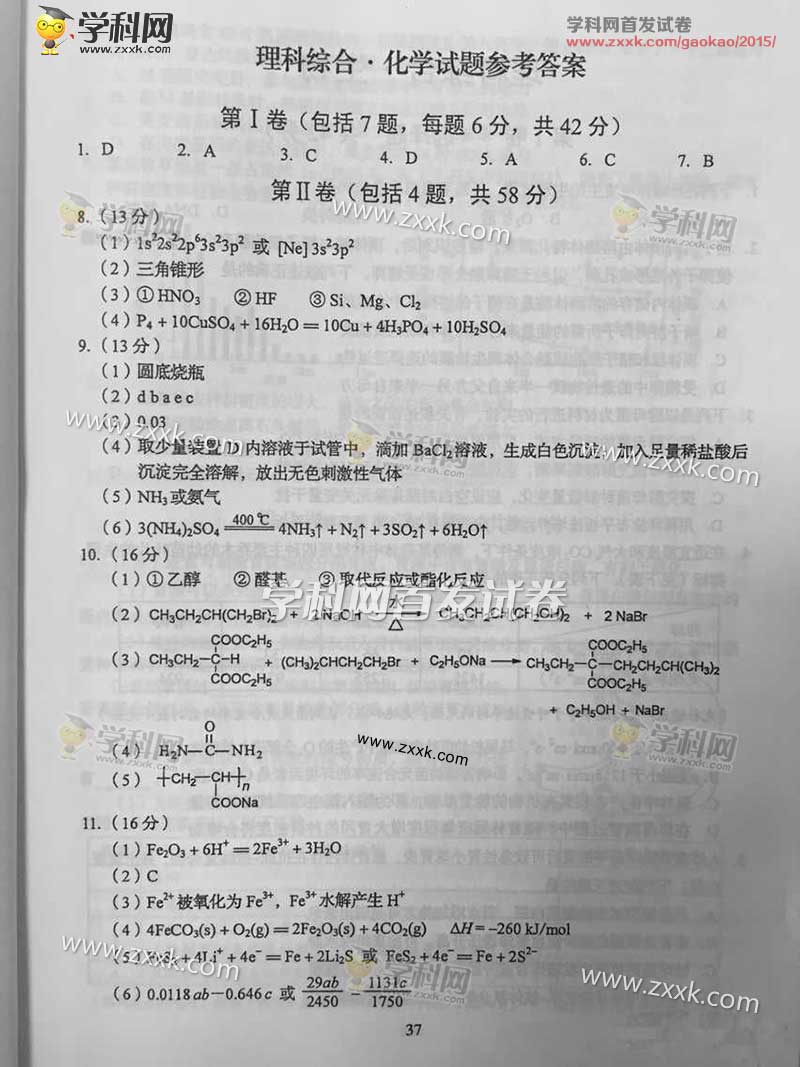 学科网
www.zxxk.com
学科网首发试卷
www.zxxk.com/gaokao/2015/
理科综合·化学试题参考答案
第Ⅰ卷(包括7题,每题6分,共42分)
1. D 2. A 3. C 4. D 5. A 6. C 7. B
第Ⅱ卷(包括4题,共58分)
8.(13分)
(1)1s²2s²2p⁶3s²3p² 或 [Ne]3s²3p²
(2)三角锥形
(3)①HNO₃ ②HF ③Si、Mg、Cl₂
(4)P₄ + 10CuSO₄ + 16H₂O = 10Cu + 4H₃PO₄ + 10H₂SO₄
9.(13分)
(1)圆底烧瓶
(2)d b a e c
(3)0.03
(4)取少量装置D内溶液于试管中,滴加BaCl₂溶液,生成白色沉淀,加入足量稀盐酸后
沉淀完全溶解,放出无色刺激性气体
(5)NH₃或氨气
(6)3(NH₄)₂SO₄ 400 ℃ 4NH₃↑ + N₂↑ + 3SO₂↑ + 6H₂O↑
10.(16分)
(1)①乙醇 ②醛基 ③取代反应或酯化反应
学科网首发试卷
(2)CH₃CH₂CH(CH₂Br)₂ + 2 NaOH △ CH₃CH₂CH(CH₂OH)₂ + 2 NaBr
(3)CH₃CH₂–C(COOC₂H₅)(COOC₂H₅)–H + (CH₃)₂CHCH₂CH₂Br + C₂H₅ONa → CH₃CH₂–C(COOC₂H₅)(COOC₂H₅)–CH₂CH₂CH(CH₃)₂
+ C₂H₅OH + NaBr
(4)H₂N–C(=O)–NH₂
(5)[CH₂–CH(COONa)]n
11.(16分)
(1)Fe₂O₃ + 6H⁺ = 2Fe³⁺ + 3H₂O
(2)C
(3)Fe²⁺被氧化为Fe³⁺,Fe³⁺水解产生H⁺
(4)4FeCO₃(s) + O₂(g) = 2Fe₂O₃(s) + 4CO₂(g) ΔH = –260 kJ/mol
(5)FeS₂ + 4Li⁺ + 4e⁻ = Fe + 2Li₂S 或 FeS₂ + 4e⁻ = Fe + 2S²⁻
(6)0.0118 ab – 0.646 c 或 29ab/2450 – 1131c/1750
37